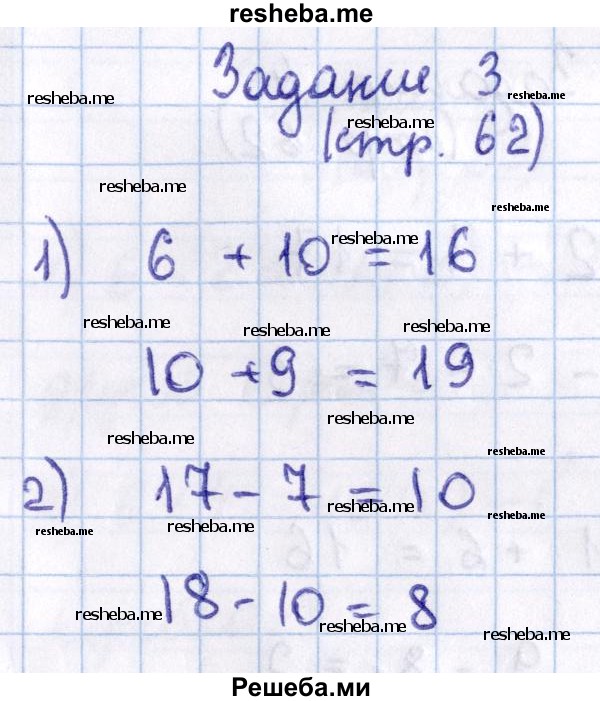 resheba.me
Задание 3
resheba.me
resheba.me
resheba.me
(стр. 62)
resheba.me
resheba.me
resheba.me
1) 6 + 10 = 16
resheba.me
resheba.me
resheba.me
10 + 9 = 19
resheba.me
resheba.me
resheba.me
2) 17 - 7 = 10
resheba.me
resheba.me
resheba.me
resheba.me
18 - 10 = 8
resheba.me
resheba.me
resheba.me
Решеба.ми